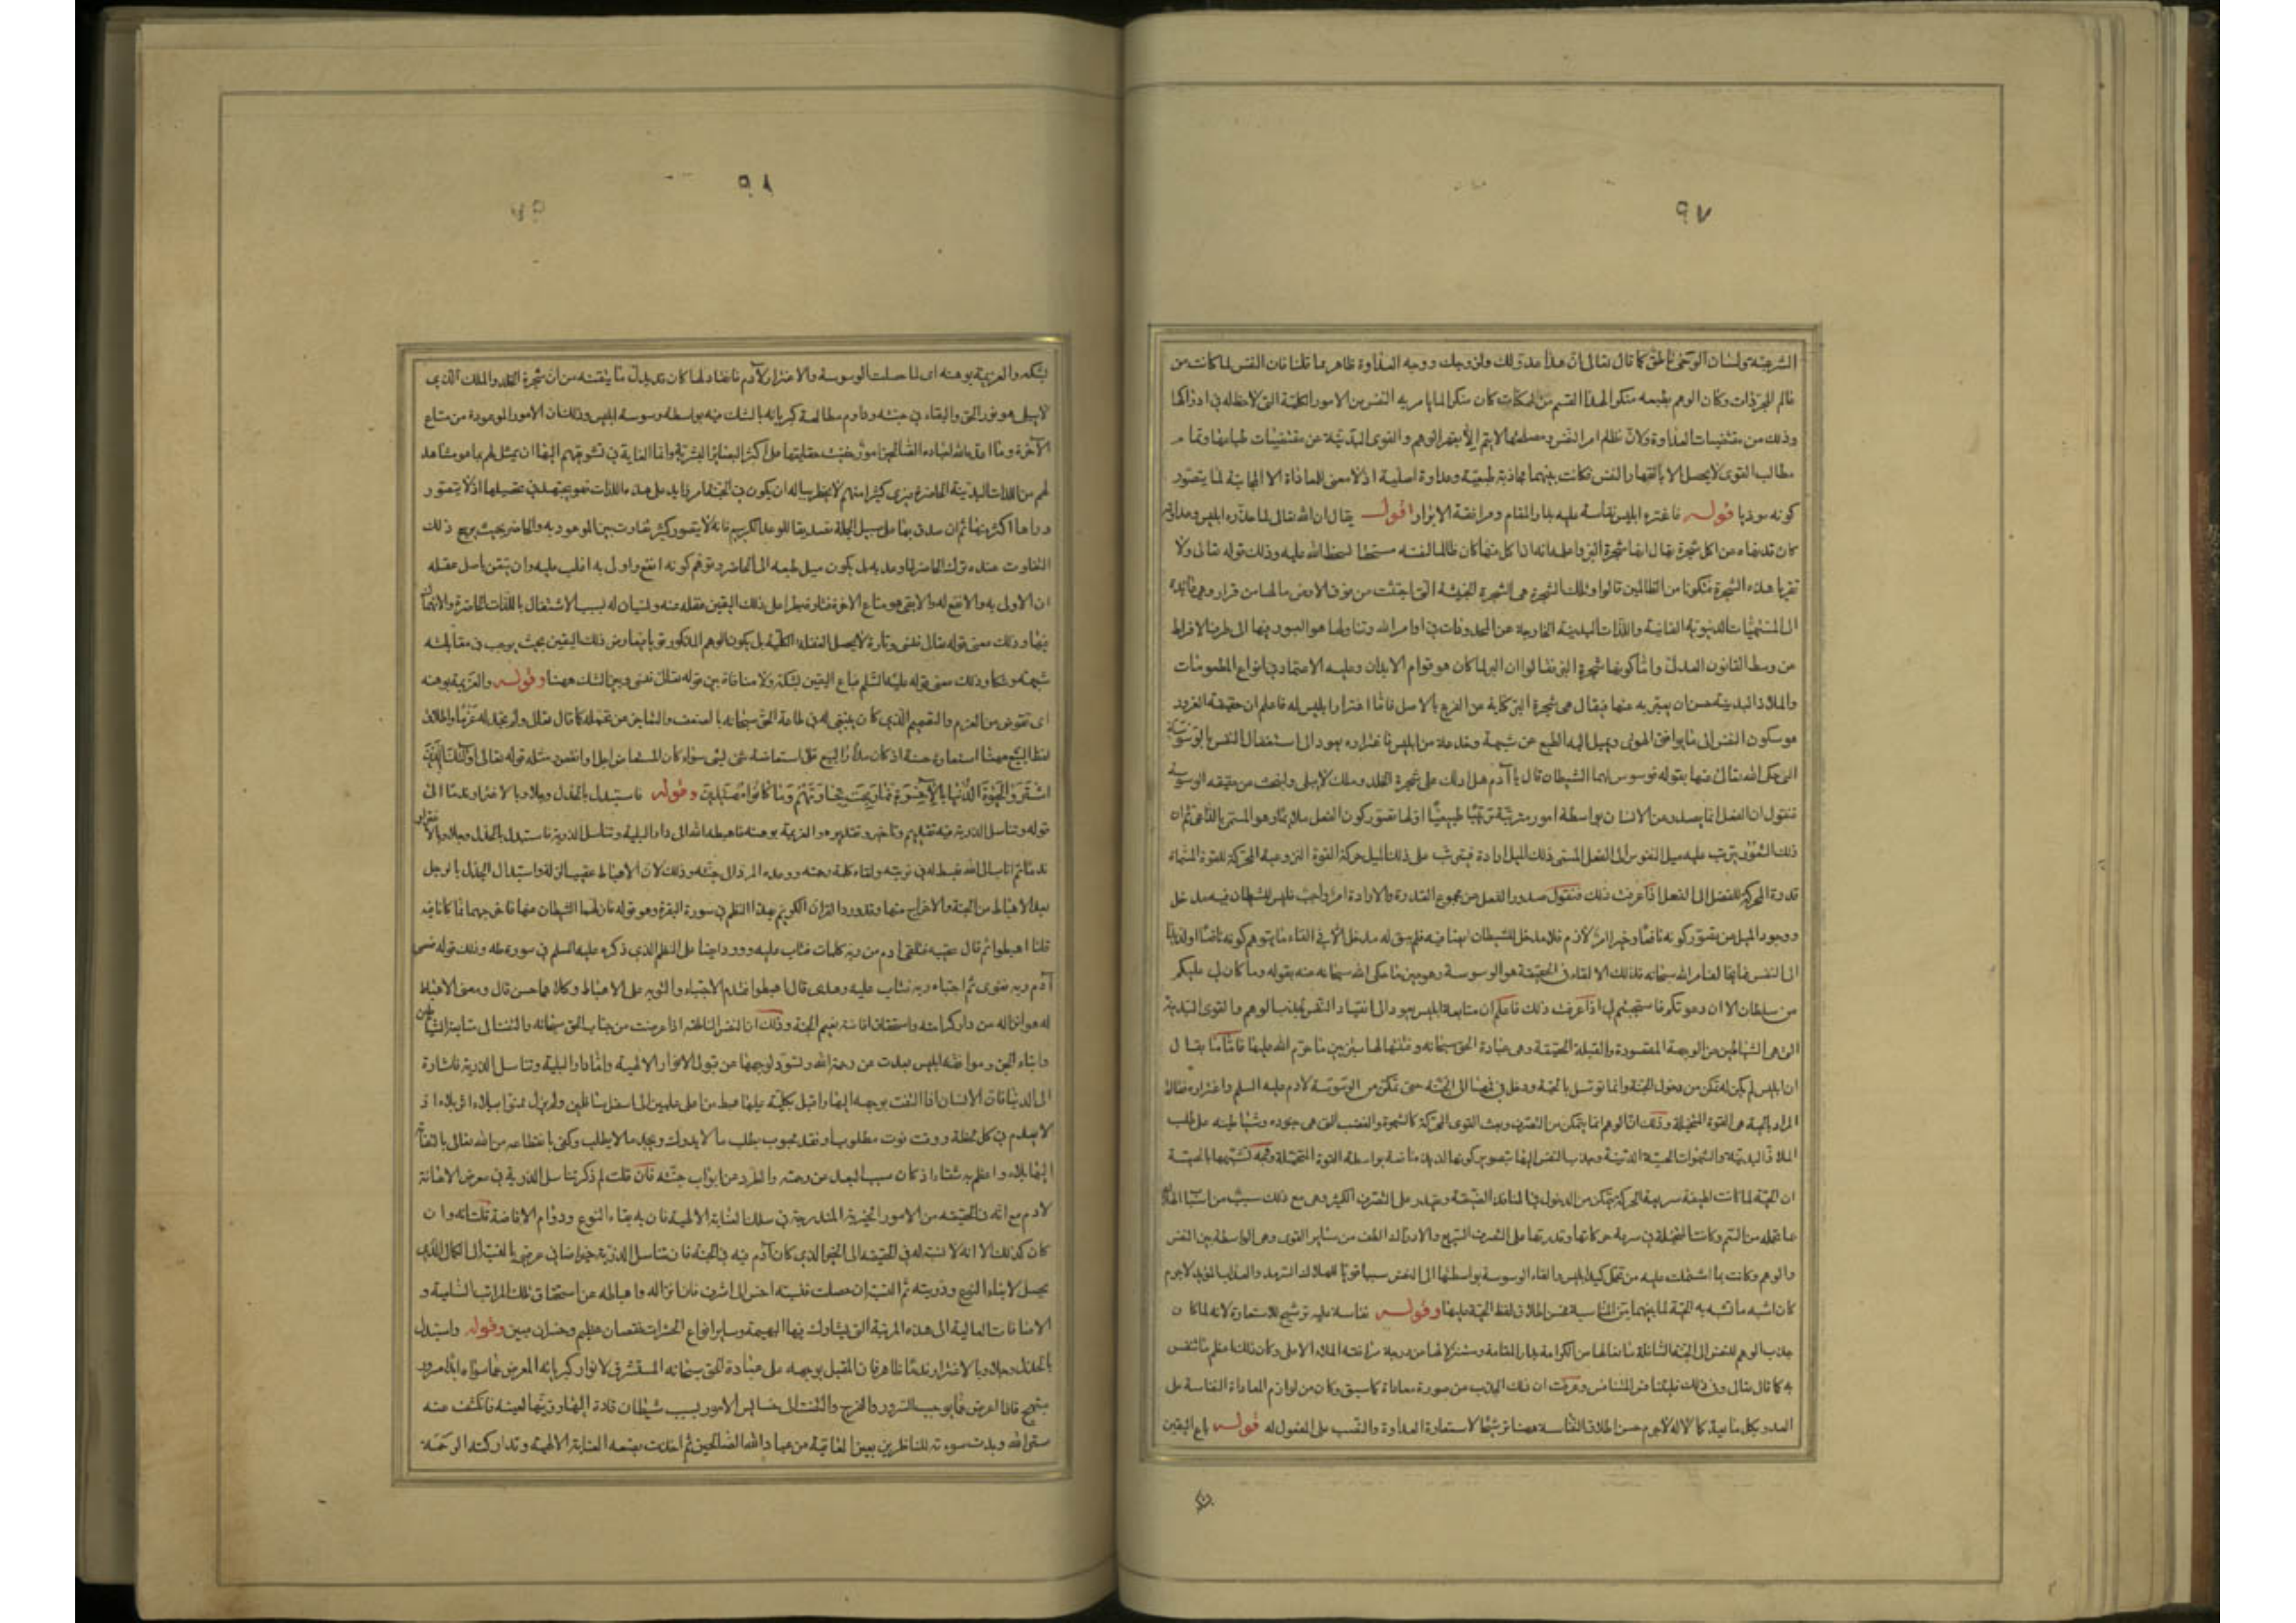 ٩٧
الشرعية ولسان الوحى ناطق كما قال تعالى ان هذا عدو لك ولزوجك ووجه العداوة ظاهر بما قلنا فان النفس لما كانت من
عالم المجردات وكان الوهم بطبعه منكرا لهذا القسم من الممكنات كان منكرا لما يامر به النفس من الامور الكلية التى لا حظ له فى ادراكها
وذلك من مقتضيات العداوة ولان نظام امر النفس ومصلحتها لا يتم الا بقهر الوهم والقوى البدنية عن مقتضيات طباعها وتمام
مطالب القوى لا يحصل الا بانقهار النفس فكانت بينهما مجاذبة طبيعية وعداوة اصلية اذ لا معنى للمعاداة الا المجانبة لما يتصور
كونه موذيا قوله فاغتره ابليس نفاسة عليه بدار المقام ومرافقة الابرار اقول يقال ان الله تعالى لما حذره ابليس وعداوته
كان قد نهاه عن اكل شجرة يقال انها شجرة البر واعلمه انه اذا اكل منها كان ظالما لنفسه مستحقا لسخط الله عليه وذلك قوله تعالى ولا
تقربا هذه الشجرة فتكونا من الظالمين قالوا وتلك الشجرة هى الشجرة الخبيثة التى اجتثت من فوق الارض مالها من قرار وهى عائدة
الى المشتهيات الدنيوية الفانية واللذات البدنية الخارجة عن المحدودات فى اوامر الله وتناولها هو العبور فيها الى طرف الافراط
من وسط القانون العدل واما كونها شجرة البر فقالوا ان البر لما كان هو قوام الابدان وعليه الاعتماد فى انواع المطعومات
والملاذ البدنية حسن ان يعبر به عنها فيقال هى شجرة البر كناية عن الفرع بالاصل فاما اغترار ابليس له فاعلم ان حقيقة الغرور
هو سكون النفس الى ما يوافق الهوى ويميل اليه الطبع عن شبهة وخدعة من ابليس فاغتراره يعود الى استغفال النفس بالوسوسة
التى حكى الله تعالى عنها بقوله فوسوس لهما الشيطان قال يا آدم هل ادلك على شجرة الخلد وملك لا يبلى والبحث عن حقيقة الوسوسة
فنقول ان الفعل انما يصدر عن الانسان بواسطة امور مترتبة ترتيبا طبيعيا اولها تصور كون الفعل ملائما وهو المسمى بالداعى ثم ان
ذلك الشعور يترتب عليه ميل النفس الى الفعل المسمى ذلك الميل ارادة فيترتب على ذلك الميل حركة القوة النزوعية المحركة للقوة المسماة
قدرة المحركة للعضل الى الفعل اذا عرفت ذلك فنقول صدور الفعل عن مجموع القدرة والارادة امر واجب فليس للشيطان فيه مدخل
ووجود الميل عن تصور كونه نافعا وخيرا امر لازم فلا مدخل للشيطان ايضا فيه فلم يبق له مدخل الا فى القاء ما يتوهم كونه نافعا او لذيذا
الى النفس مما يخالف امر الله سبحانه فذلك الالقاء فى الحقيقة هو الوسوسة وهو عين ما حكى الله سبحانه عنه بقوله وما كان لى عليكم
من سلطان الا ان دعوتكم فاستجبتم لى اذا عرفت ذلك فاعلم ان متابعة ابليس يعود الى انقياد النفس لجذب الوهم والقوى البدنية
التى هى الشياطين عن الوجهة المقصودة والقبلة الحقيقة وهى عبادة الحق سبحانه وفتنتها لها بتزيين ما حرم الله عليها فاما ما يقال
ان ابليس لم يكن له تمكن من دخول الجنة وانما توسل بالحية ودخل فى فمها الى الجنة حتى تمكن من الوسوسة لادم عليه السلم واغتراره فقالوا
المراد بالحية هى القوة المتخيلة وذلك ان الوهم انما يتمكن من التصرف وبعث القوى المحركة كالشهوة والغضب التى هى جنوده وشياطينه على طلب
الملاذ البدنية والشهوات الحسية الدنية وجذب النفس اليها بتصوير كونها لذيذة نافعة بواسطة القوة المتخيلة ووجه تشبيهها بالحية
ان الحية لما كانت لطيفة سريعة الحركة تتمكن من الدخول فى المنافذ الضيقة وتقدر على التصرف الكثير وهى مع ذلك سبب من اسباب الهلاك
بما تحمله من السم وكانت المتخيلة فى سرعة حركاتها وقدرتها على التصرف السريع والادراك الطف من سائر القوى وهى الواسطة بين النفس
والوهم وكانت بما اشتملت عليه من تحمل كيد ابليس والقاء الوسوسة بواسطتها الى النفس سببا قويا للهلاك السرمد والعذاب المؤبد لاجرم
كان اشبه ما تشبه به الحية لما بينهما من المناسبة فحسن اطلاق لفظ الحية عليها وقوله نفاسة عليه ترشيح للاستعارة لانه لما كان
جذب الوهم للنفس الى الجنبة السافلة مانعا لها من الكرامة بدار المقامة ومنزلا لها من درجة مرافقة الملاء الاعلى وكان ذلك اعظم ما تنفس
به كما قال تعالى وفى ذلك فليتنافس المتنافسون وعرفت ان ذلك الجذب عن صورة معاداة كما سبق وكان من لوازم المعاداة النفاسة على
العدو بكل ما يعد كمالا له لاجرم حسن اطلاق النفاسة ههنا ترشيحا لاستعارة العداوة والنصب على المفعول له قوله باع اليقين
٩٨
بشكه والعزيمة بوهنه اى لما حصلت الوسوسة والاغترار لآدم فانقاد لها كان قد بدل ما تيقنه من ان شجرة الخلد والملك الذى
لا يبلى هو نور الحق والبقاء فى جنته ودوام مطالعة كبريائه بالشك فيه بواسطة وسوسة ابليس وذلك ان الامور الموعودة من متاع
الآخرة وما اعد الله لعباده الصالحين امور خفيت حقايقها على اكثر البصائر البشرية وانما الغاية فى تشويقهم اليها ان يمثل لهم بما هو مشاهد
لهم من اللذات البدنية الحاضرة فترى كثيرا منهم لا يخطر بباله ان يكون فى الجنة امر زايد على هذه اللذات فهو يجتهد فى تحصيلها اذ لا يتصور
وراءها اكثر منها ثم ان صدق بها على سبيل الجملة تصديقا للوعد الكريم فانه لا يتصور كثير تفاوت بين الموعود به والحاضر بحيث يرجح ذلك
التفاوت عنده ترك الحاضر لما وعد به بل يكون ميل طبعه الى الحاضر وتوهم كونه انفع واولى به اغلب عليه وان تيقن باصل عقله
ان الاولى به والانفع له والابقى هو متاع الاخرة فتارة يطرا على ذلك اليقين غفلة عنه ونسيان له بسبب الاشتغال باللذات الحاضرة والانهماك
فيها وذلك معنى قوله تعالى فنسى وتارة لا يحصل الغفلة الكلية بل يكون الوهم المذكور قويا فيعارض ذلك اليقين بحيث يوجب فى مقابلته
شبهة وشكا وذلك معنى قوله عليه السلم فباع اليقين بشكه ولا منافاة بين قوله تعالى فنسى وبين الشك ههنا وقوله والعزيمة بوهنه
اى تعوض من العزم والتصميم الذى كان ينبغى له فى طاعة الحق سبحانه بالضعف والتباين عن تحمله كما قال تعالى ولم نجد له عزما واطلاق
لفظ البيع ههنا استعارة حسنة اذ كان مدار البيع على استعاضة شى لشى سواء كان المستعاض اجل او انقص ومثله قوله تعالى اولئك الذين
اشتروا الحيوة الدنيا بالآخرة فما ربحت تجارتهم وما كانوا مهتدين وقوله فاستبدل بالجذل وجلا وبالاغترار ندما الى
قوله وتناسل الذرية فيه تقديم وتاخير وتقديره والعزيمة بوهنه فاهبطه الله الى دار البلية وتناسل الذرية فاستبدل بالجذل وجلا وبالاغترار
ندما ثم اناب الى الله فبسط له فى توبته ولقاه كلمة رحمته ووعده المرد الى جنته وذلك لان الاهباط عقيب الزلة واستبدال الجذل بالوجل
بعد الاهباط من الجنة والاخراج منها وقد ورد القران الكريم بهذا النظم فى سورة البقرة وهو قوله فازلهما الشيطان عنها فاخرجهما مما كانا فيه
قلنا اهبطوا ثم قال عقيبه فتلقى ادم من ربه كلمات فتاب عليه وورد ايضا على النظم الذى ذكره عليه السلم فى سورة طه وذلك قوله فعصى
آدم ربه فغوى ثم اجتباه ربه فتاب عليه وهدى قال اهبطوا فقدم الاجتباء والتوبة على الاهباط وكلاهما حسن قال ومعنى الاهباط
له هو انزاله من دار كرامته واستحقاق افاضة نعيم الجنة وذلك ان النفس الناطقة اذا اعرضت عن جناب الحق سبحانه والتفتت الى متابعة الشياطين
وابناء الجن وموافقة ابليس بعدت من رحمة الله وتسود لوجهها عن قبول الانوار الالهية واما دار البلية وتناسل الذرية فاشارة
الى الدنيا فان الانسان اذا التفت بوجهه اليها واقبل بكليته عليها هبط من اعلى عليين الى اسفل سافلين ولم يزل ممنوا ببلاء اثر بلاء اذ
لا يعدم فى كل لحظة ووقت فوت مطلوب او فقد محبوب يطلب ما لا يدرك ويجد ما لا يطلب وكفى بانقطاعه عن الله تعالى بالتفاته
اليها بلاء واعظم به شقاء اذ كان سبب البعد من رحمته والطرد عن ابواب جنته فان قلت لم ذكر تناسل الذرية فى معرض الاهانة
لادم مع انه فى الحقيقة من الامور الخيرية المندرجة فى سلك العناية الالهية فان به بقاء النوع ودوام الافاضة قلت انه وان
كان كذلك الا انه لا نسبة له فى الحقيقة الى الخير الذى كان آدم فيه فى الجنة فان تناسل الذرية خير اضافى عرضى بالنسبة الى الكمال الذى
يحصل لابناء النوع وذريته ثم النسبة ان حصلت فنسبة اخس الى اشرف فاذا نزاله واهباطه عن استحقاق تلك المراتب السامية و
الافاضات العالية الى هذه المرتبة التى يشارك فيها البهيمة وساير انواع الحشرات نقصان عظيم وخسران مبين وقوله واستبدل
بالجذل وجلا وبالاغترار ندما ظاهر فان المقبل بوجهه على عبادة الحق سبحانه المستشرق لانوار كبريائه المعرض عما سواه ابدا مسرور
مبتهج فاذا اعرض عما يوجب السرور والفرح والتفت الى خسايس الامور بسبب شيطان قاده اليها وزينها لعينه فانكشف عنه
ستر الله وبدت سوءته للناظرين بعين العناية من عباد الله الصالحين ثم اخذت بضبعه العناية الالهية وتداركته الرحمة